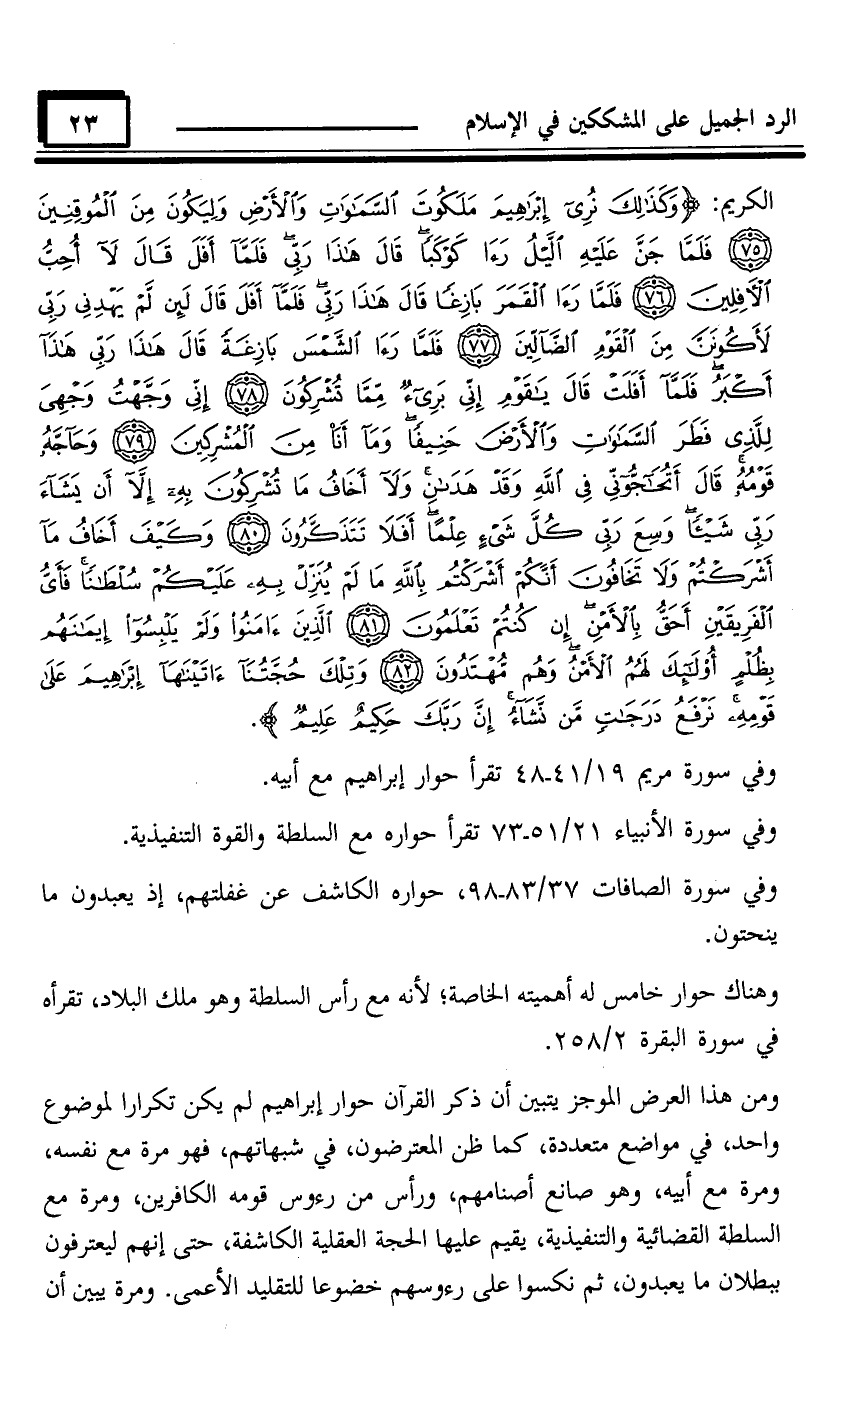 الرد الجميل على المشككين في الإسلام ٢٣
الكريم: ﴿وَكَذَٰلِكَ نُرِىٓ إِبْرَٰهِيمَ مَلَكُوتَ ٱلسَّمَٰوَٰتِ وَٱلْأَرْضِ وَلِيَكُونَ مِنَ ٱلْمُوقِنِينَ
٧٥ فَلَمَّا جَنَّ عَلَيْهِ ٱلَّيْلُ رَءَا كَوْكَبًا ۖ قَالَ هَٰذَا رَبِّى ۖ فَلَمَّآ أَفَلَ قَالَ لَآ أُحِبُّ
ٱلْأَفِلِينَ ٧٦ فَلَمَّا رَءَا ٱلْقَمَرَ بَازِغًا قَالَ هَٰذَا رَبِّى ۖ فَلَمَّآ أَفَلَ قَالَ لَئِن لَّمْ يَهْدِنِى رَبِّى
لَأَكُونَنَّ مِنَ ٱلْقَوْمِ ٱلضَّآلِّينَ ٧٧ فَلَمَّا رَءَا ٱلشَّمْسَ بَازِغَةً قَالَ هَٰذَا رَبِّى هَٰذَآ
أَكْبَرُ ۖ فَلَمَّآ أَفَلَتْ قَالَ يَٰقَوْمِ إِنِّى بَرِىٓءٌ مِّمَّا تُشْرِكُونَ ٧٨ إِنِّى وَجَّهْتُ وَجْهِىَ
لِلَّذِى فَطَرَ ٱلسَّمَٰوَٰتِ وَٱلْأَرْضَ حَنِيفًا ۖ وَمَآ أَنَا۠ مِنَ ٱلْمُشْرِكِينَ ٧٩ وَحَآجَّهُۥ
قَوْمُهُۥ ۚ قَالَ أَتُحَٰٓجُّوٓنِّى فِى ٱللَّهِ وَقَدْ هَدَىٰنِ ۚ وَلَآ أَخَافُ مَا تُشْرِكُونَ بِهِۦٓ إِلَّآ أَن يَشَآءَ
رَبِّى شَيْـًٔا ۗ وَسِعَ رَبِّى كُلَّ شَىْءٍ عِلْمًا ۗ أَفَلَا تَتَذَكَّرُونَ ٨٠ وَكَيْفَ أَخَافُ مَآ
أَشْرَكْتُمْ وَلَا تَخَافُونَ أَنَّكُمْ أَشْرَكْتُم بِٱللَّهِ مَا لَمْ يُنَزِّلْ بِهِۦ عَلَيْكُمْ سُلْطَٰنًا ۚ فَأَىُّ
ٱلْفَرِيقَيْنِ أَحَقُّ بِٱلْأَمْنِ ۖ إِن كُنتُمْ تَعْلَمُونَ ٨١ ٱلَّذِينَ ءَامَنُوا۟ وَلَمْ يَلْبِسُوٓا۟ إِيمَٰنَهُم
بِظُلْمٍ أُو۟لَٰٓئِكَ لَهُمُ ٱلْأَمْنُ وَهُم مُّهْتَدُونَ ٨٢ وَتِلْكَ حُجَّتُنَآ ءَاتَيْنَٰهَآ إِبْرَٰهِيمَ عَلَىٰ
قَوْمِهِۦ ۚ نَرْفَعُ دَرَجَٰتٍ مَّن نَّشَآءُ ۗ إِنَّ رَبَّكَ حَكِيمٌ عَلِيمٌ﴾.
وفي سورة مريم ٤١/١٩-٤٨ تقرأ حوار إبراهيم مع أبيه.
وفي سورة الأنبياء ٥١/٢١-٧٣ تقرأ حواره مع السلطة والقوة التنفيذية.
وفي سورة الصافات ٨٣/٣٧-٩٨، حواره الكاشف عن غفلتهم، إذ يعبدون ما
ينحتون.
وهناك حوار خامس له أهميته الخاصة؛ لأنه مع رأس السلطة وهو ملك البلاد، تقرأه
في سورة البقرة ٢٥٨/٢.
ومن هذا العرض الموجز يتبين أن ذكر القرآن حوار إبراهيم لم يكن تكرارا لموضوع
واحد، في مواضع متعددة، كما ظن المعترضون، في شبهاتهم، فهو مرة مع نفسه،
ومرة مع أبيه، وهو صانع أصنامهم، ورأس من رءوس قومه الكافرين، ومرة مع
السلطة القضائية والتنفيذية، يقيم عليها الحجة العقلية الكاشفة، حتى إنهم ليعترفون
ببطلان ما يعبدون، ثم نكسوا على رءوسهم خضوعا للتقليد الأعمى. ومرة يبين أن